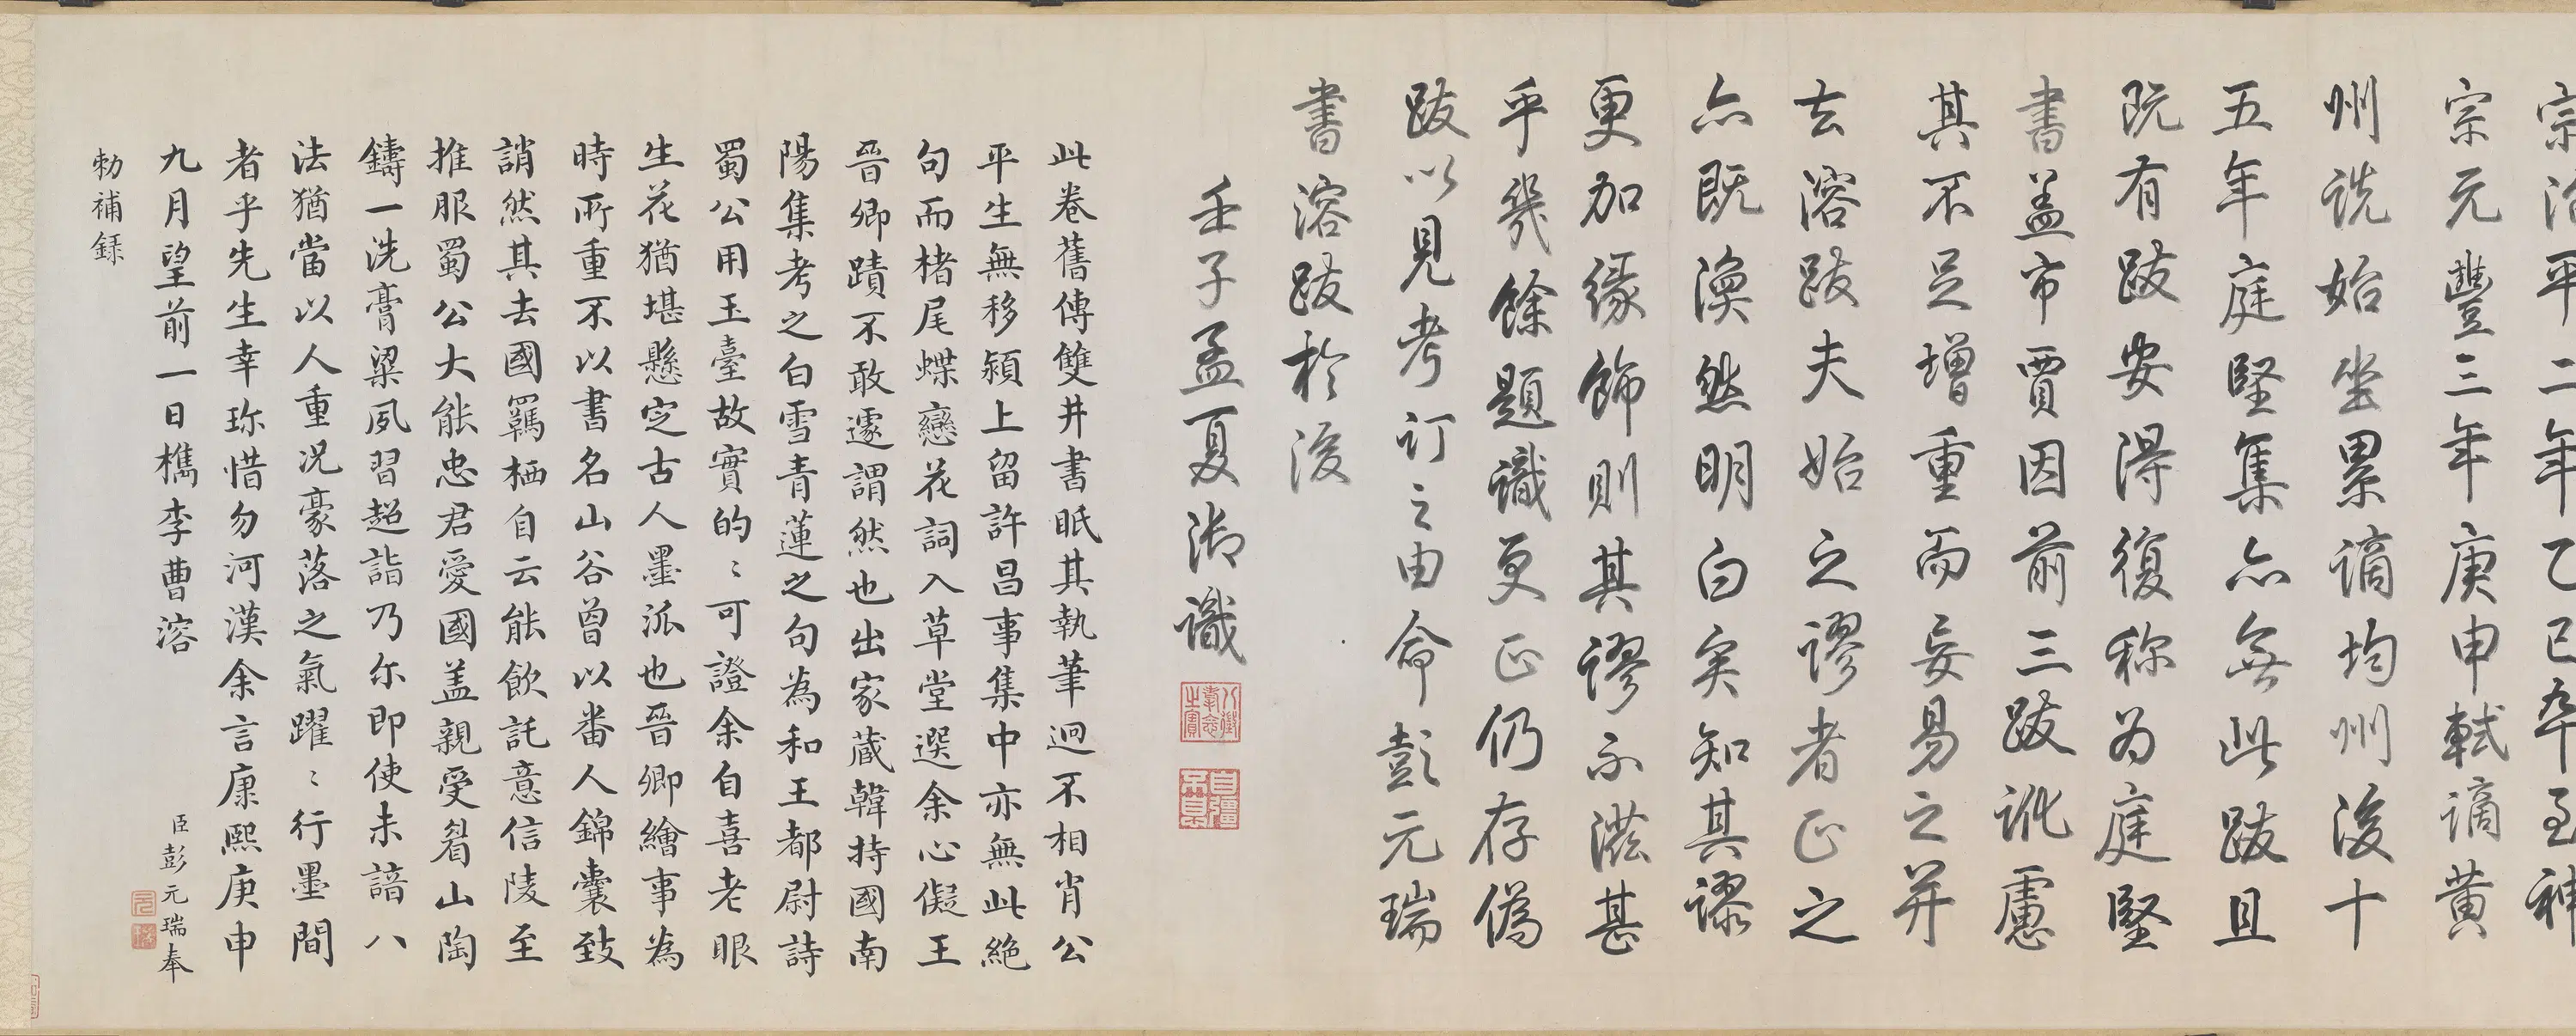 宗治平二年乙巳卒至神
宗元豐三年庚申軾謫黄
州詵始坐累謫均州後十
五年庭堅集亦無此跋且
既有跋安得復称为庭堅
書盖市賈因前三跋訛慮
其不足增重而妄易之并
去溶跋夫始之謬者正之
亦既渙然明白矣知其謬
更加缘飾則其謬不滋甚
乎幾餘題識更正仍存偽
跋以見考訂之由命彭元瑞
書溶跋於後
壬子孟夏御識
八徵耄念之寳
自彊不息
此卷舊傳雙井書眂其執筆迥不相肖公
平生無移潁上留許昌事集中亦無此絶
句而楮尾蝶戀花詞入草堂選余心儗王
晉卿蹟不敢遽謂然也出家藏韓持國南
陽集考之白雪青蓮之句為和王都尉詩
蜀公用玉臺故實的〻可證余自喜老眼
生花猶堪懸定古人墨派也晉卿繪事為
時所重不以書名山谷曾以番人錦囊致
誚然其去國羈栖自云能飲託意信陵至
推服蜀公大能忠君愛國盖親受眉山陶
鑄一洗膏粱夙習超詣乃尓即使未諳八
法猶當以人重况豪落之氣躍〻行墨間
者乎先生幸珎惜勿河漢余言康熙庚申
九月望前一日檇李曹溶
臣彭元瑞奉
勑補録